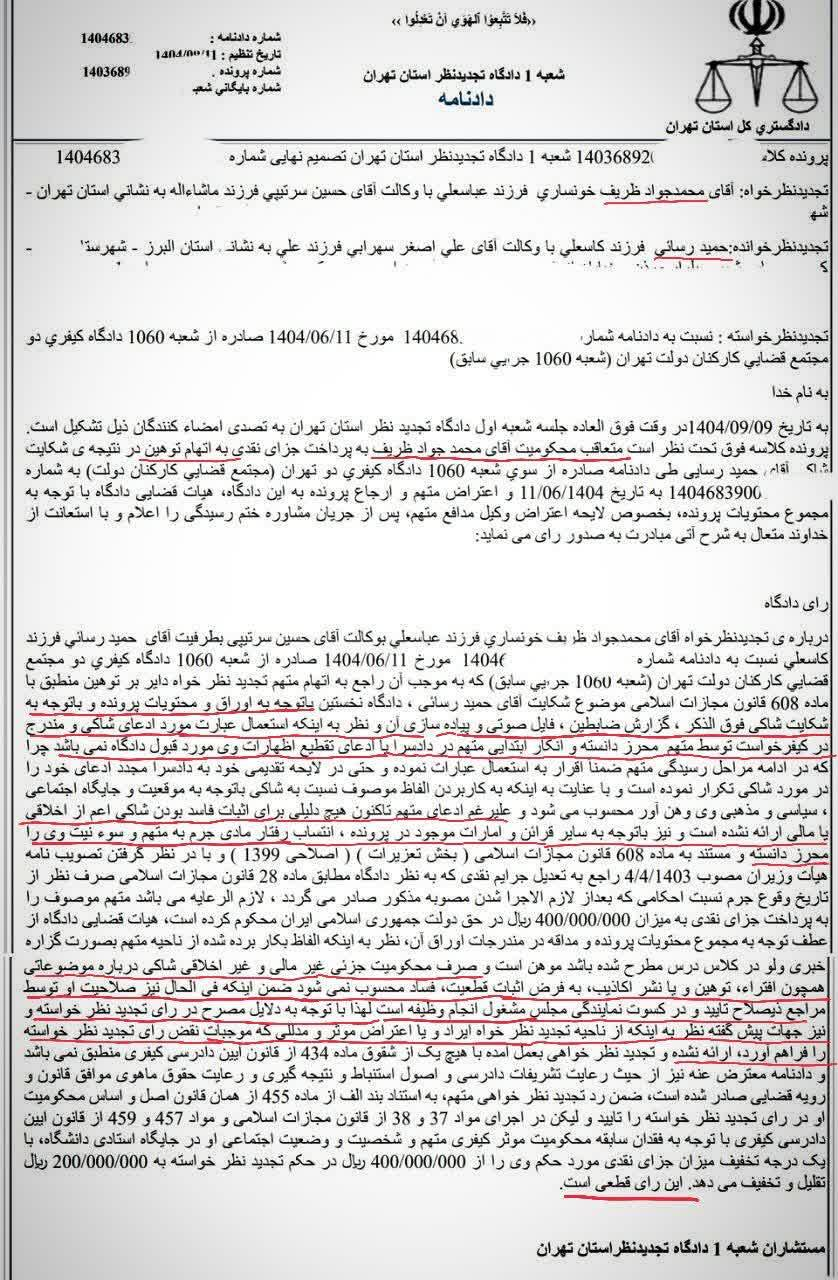 «فَلاَ تَتَّبِعُوا اَلْهَوى أَنْ تَعْدِلُوا»
شماره دادنامه : 1404683
تاریخ تنظیم : 1404/09/11
شماره پرونده : 1403689
شماره بایگاني شعبه
شعبه 1 دادگاه تجدیدنظر استان تهران
دادنامه
دادگستري کل استان تهران
پرونده کلاسه 14036892 شعبه 1 دادگاه تجدیدنظر استان تهران تصمیم نهایی شماره 1404683
تجدیدنظرخواه: آقای محمدجواد ظریف خونساري فرزند عباسعلي با وکالت آقای حسین سرتیپي فرزند ماشاءاله به نشاني استان تهران -
تجدیدنظرخوانده:حمید رسائي فرزند کاسعلي با وکالت آقای علي اصغر سهرابي فرزند علي به نشاني استان البرز -
تجدیدنظرخواسته : نسبت به دادنامه شماره 140468 مورخ 1404/06/11 صادره از شعبه 1060 دادگاه کیفري دو
مجتمع قضایي کارکنان دولت تهران (شعبه 1060 جزایي سابق)
به نام خدا
به تاریخ 1404/09/09در وقت فوق العاده جلسه شعبه اول دادگاه تجدید نظر استان تهران به تصدی امضاء کنندگان ذیل تشکیل است.
پرونده کلاسه فوق تحت نظر است متعاقب محکومیت آقای محمد جواد ظریف به پرداخت جزای نقدی به اتهام توهین در نتیجه ی شکایت
شاکی آقای حمید رسایی طی دادنامه صادره از سوي شعبه 1060 دادگاه کیفري دو تهران (مجتمع قضایي کارکنان دولت) به شماره
1404683900 به تاریخ 11/06/1404 و اعتراض متهم و ارجاع پرونده به این دادگاه، هیات قضایی دادگاه با توجه به
مجموع محتویات پرونده، بخصوص لایحه اعتراض وکیل مدافع متهم، پس از جریان مشاوره ختم رسیدگی را اعلام و با استعانت از
خداوند متعال به شرح آتی مبادرت به صدور رای می نماید:
رای دادگاه
درباره ی تجدیدنظرخواه آقای محمدجواد ظریف خونساري فرزند عباسعلي بوکالت آقای حسین سرتیپی بطرفیت آقای حمید رسائي فرزند
کاسعلي نسبت به دادنامه شماره 14046 مورخ 1404/06/11 صادره از شعبه 1060 دادگاه کیفري دو مجتمع
قضایي کارکنان دولت تهران (شعبه 1060 جزایي سابق) که به موجب آن راجع به اتهام متهم تجدید نظر خواه دایر بر توهین منطبق با
ماده 608 قانون مجازات اسلامی موضوع شکایت آقای حمید رسائی ، دادگاه نخستین باتوجه به اوراق و محتویات پرونده و باتوجه به
شکایت شاکی فوق الذکر ، گزارش ضابطین ، فایل صوتی و پیاده سازی آن و نظر به اینکه استعمال عبارت مورد ادعای شاکی و مندرج
در کیفرخواست توسط متهم محرز دانسته و انکار ابتدایی متهم در دادسرا با ادعای تقطیع اظهارات وی مورد قبول دادگاه نمی باشد چرا
که در ادامه مراحل رسیدگی متهم ضمناً اقرار به استعمال عبارات نموده و حتی در لایحه تقدیمی خود به دادسرا مجدد ادعای خود را
در مورد شاکی تکرار نموده است و با عنایت به اینکه به کاربردن الفاظ موصوف نسبت به شاکی باتوجه به موقعیت و جایگاه اجتماعی
، سیاسی و مذهبی وی وهن آور محسوب می شود و علیرغم ادعای متهم تاکنون هیچ دلیلی برای اثبات فاسد بودن شاکی اعم از اخلاقی
یا مالی ارائه نشده است و نیز باتوجه به سایر قرائن و امارات موجود در پرونده ، انتساب رفتار مادی جرم به متهم و سوء نیت وی را
محرز دانسته و مستند به ماده 608 قانون مجازات اسلامی ( بخش تعزیرات ) ( اصلاحی 1399 ) و با در نظر گرفتن تصویب نامه
هیأت وزیران مصوب 4/4/1403 راجع به تعدیل جرایم نقدی که به نظر دادگاه مطابق ماده 28 قانون مجازات اسلامی صرف نظر از
تاریخ وقوع جرم نسبت احکامی که بعداز لازم الاجرا شدن مصوبه مذکور صادر می گردد ، لازم الرعایه می باشد متهم موصوف را
به پرداخت جزای نقدی به میزان 400/000/000 ریال در حق دولت جمهوری اسلامی ایران محکوم کرده است، هیات قضایی دادگاه از
عطف توجه به مجموع محتویات پرونده و مداقه در مندرجات اوراق آن، نظر به اینکه الفاظ بکار برده شده از ناحیه متهم بصورت گزاره
خبری ولو در کلاس درس مطرح شده باشد موهن است و صرف محکومیت جزئی غیر مالی و غیر اخلاقی شاکی درباره موضوعاتی
همچون افتراء، توهین و یا نشر اکاذیب، به فرض اثبات قطعیت، فساد محسوب نمی شود ضمن اینکه فی الحال نیز صلاحیت او توسط
مراجع ذیصلاح تایید و در کسوت نمایندگی مجلس مشغول انجام وظیفه است لهذا با توجه به دلایل مصرح در رای تجدید نظر خواسته و
نیز جهات پیش گفته نظر به اینکه از ناحیه تجدید نظر خواه ایراد و یا اعتراض موثر و مدللی که موجبات نقض رای تجدید نظر خواسته
را فراهم آورد، ارائه نشده و تجدید نظر خواهی بعمل آمده با هیچ یک از شقوق ماده 434 از قانون آیین دادرسی کیفری منطبق نمی باشد
و دادنامه معترض عنه نیز از حیث رعایت تشریفات دادرسی و اصول استنباط و نتیجه گیری و رعایت حقوق ماهوی موافق قانون و
رویه قضایی صادر شده است، ضمن رد تجدید نظر خواهی متهم، به استناد بند الف از ماده 455 از همان قانون اصل و اساس محکومیت
او در رای تجدید نظر خواسته را تایید و لیکن در اجرای مواد 37 و 38 از قانون مجازات اسلامی و مواد 457 و 459 از قانون ایین
دادرسی کیفری با توجه به فقدان سابقه محکومیت موثر کیفری متهم و شخصیت و وضعیت اجتماعی او در جایگاه استادی دانشگاه، با
یک درجه تخفیف میزان جزای نقدی مورد حکم وی را از 400/000/000 ریال در حکم تجدید نظر خواسته به 200/000/000 ریال
تقلیل و تخفیف می دهد. این رای قطعی است.
مستشاران شعبه 1 دادگاه تجدیدنظراستان تهران